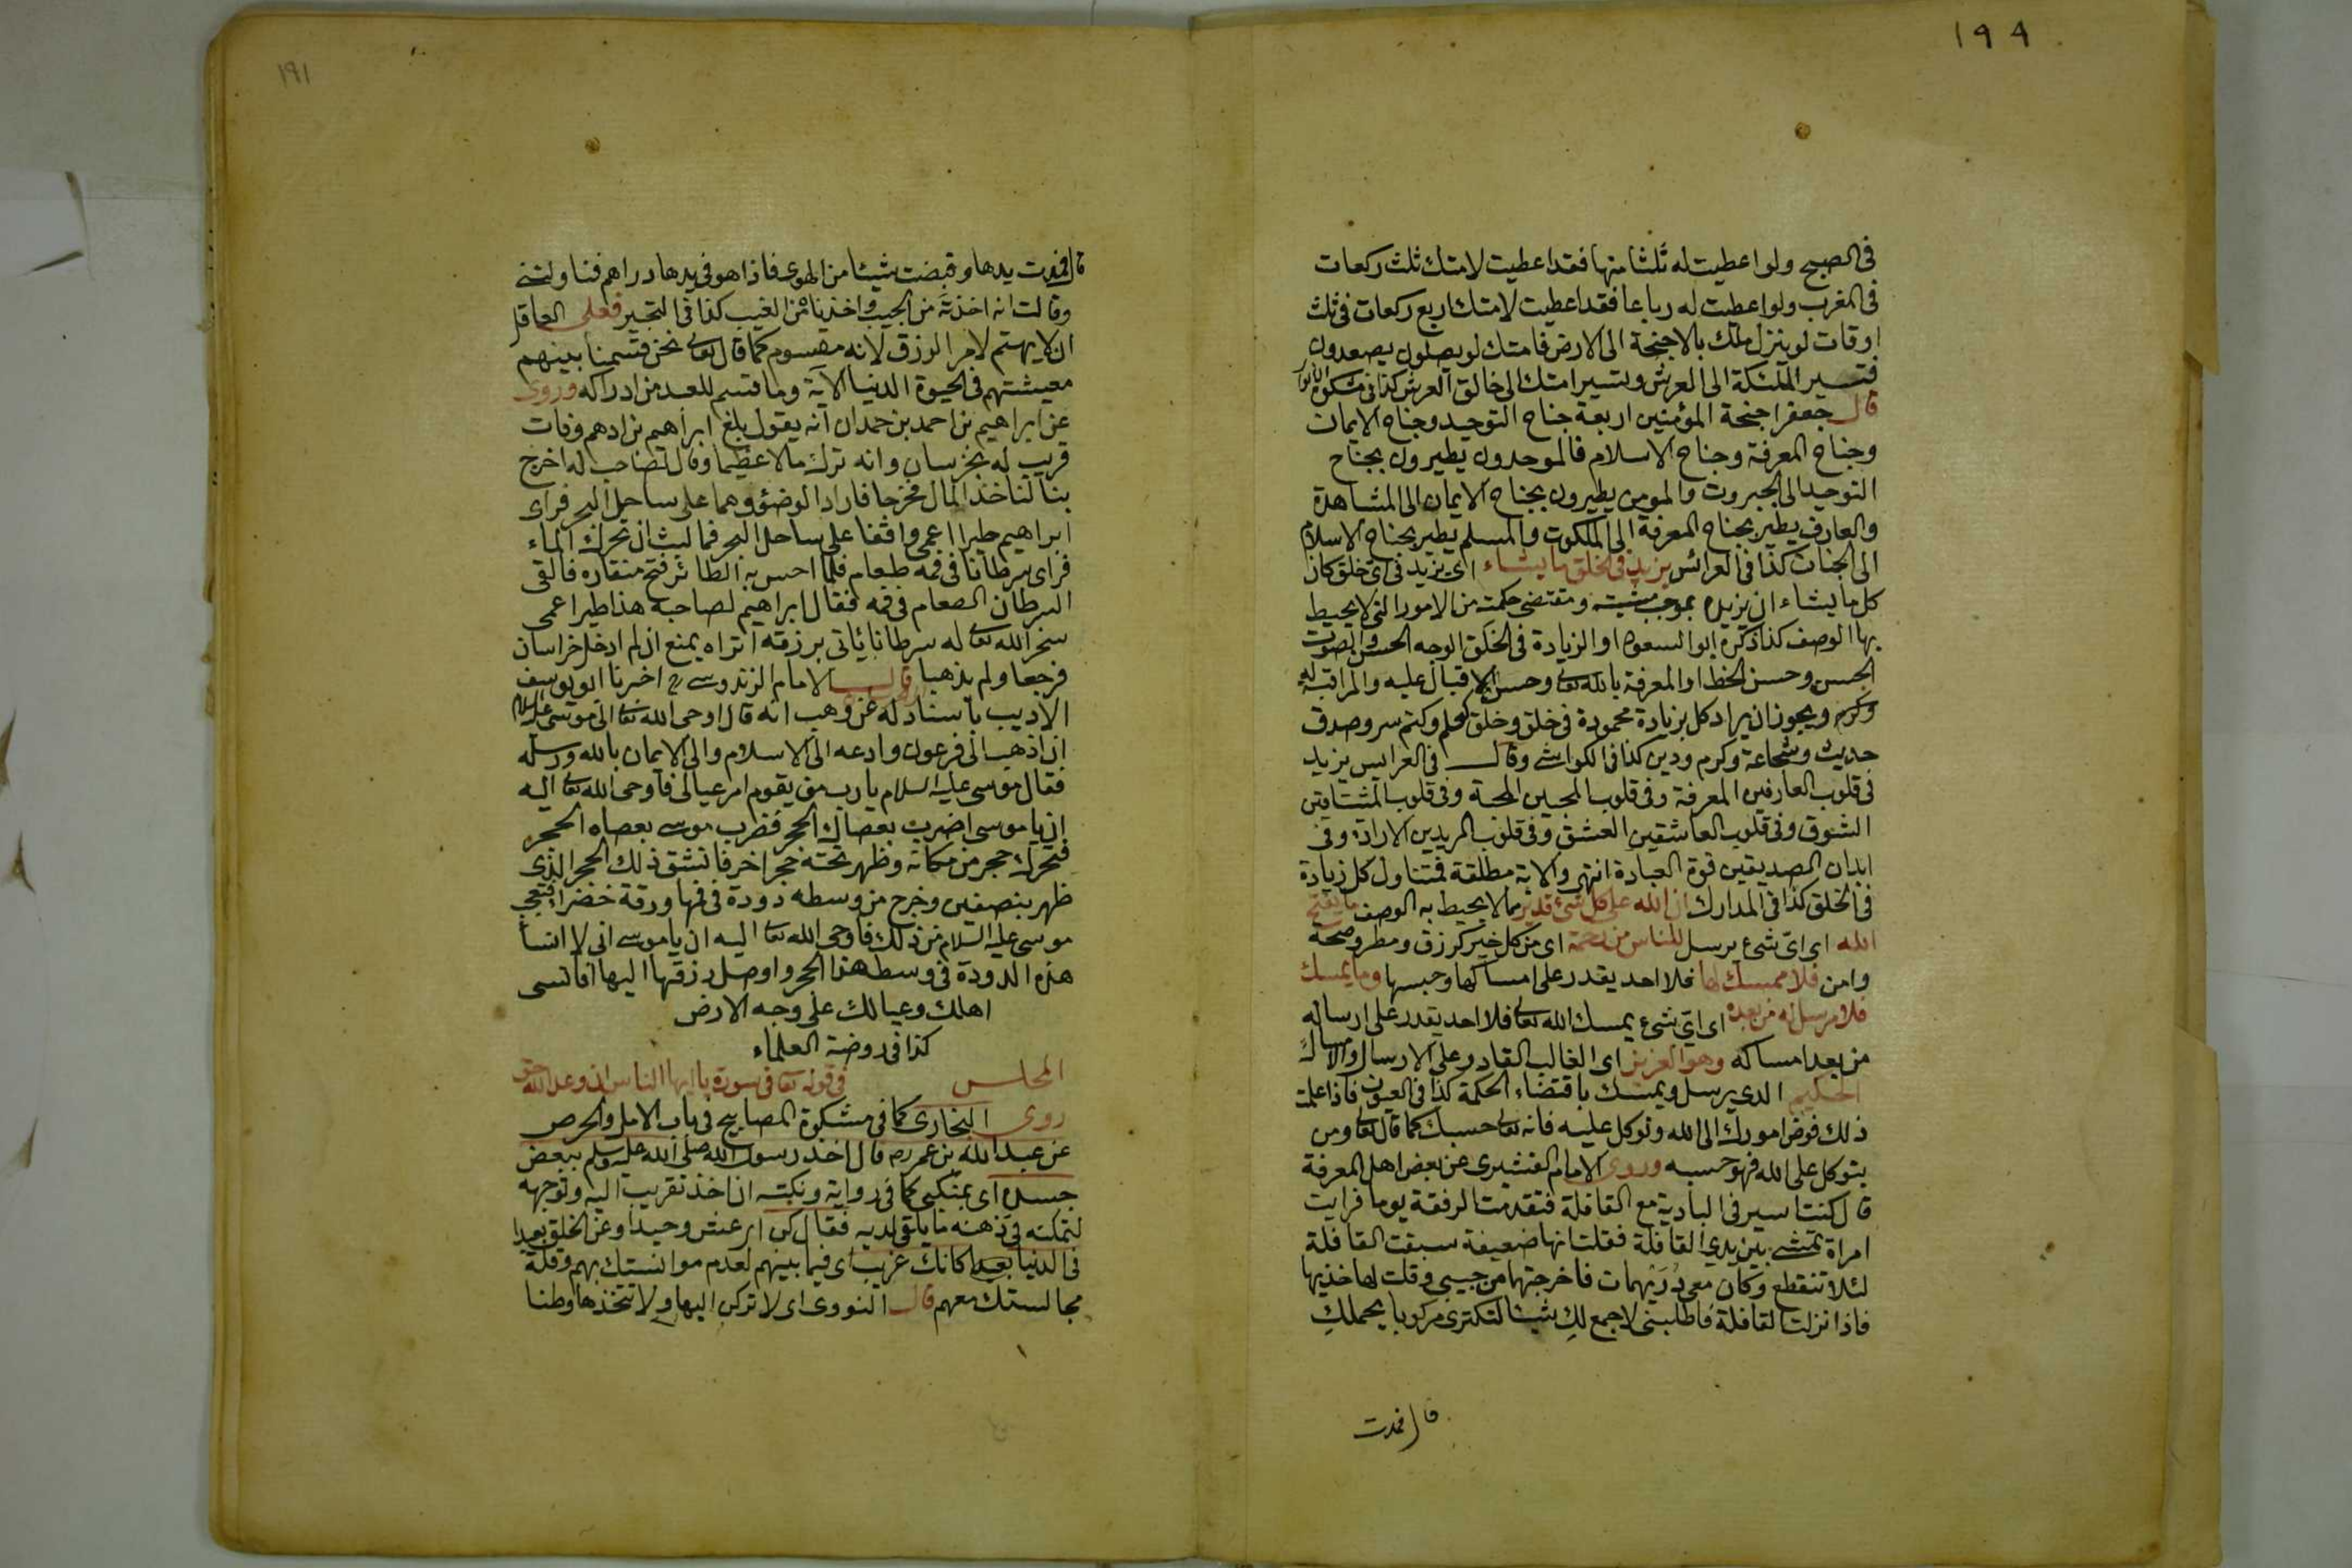 ١٩٩
فى الصبح ولو اعطيت له ثلثا منها فقد اعطيت لامتك ثلث ركعات
فى المغرب ولو اعطيت له رباعا فقد اعطيت لامتك اربع ركعات فى ثلث
اوقات لو ينزل ملك بالاجنحة الى الارض فامتك لو يصلون يصعدون
فتسير الملئكة الى العرش وتسير امتك الى خالق العرش كذا فى مشكوة الانوار
قال جعفر اجنحة المؤمنين اربعة جناح التوحيد وجناح الايمان
وجناح المعرفة وجناح الاسلام فالموحدون يطيرون بجناح
التوحيد الى الجبروت والمومن يطيرون بجناح الايمان الى المشاهدة
والعارف يطير بجناح المعرفة الى الملكوت والمسلم يطير بجناح الاسلام
الى الجنات كذا فى العرائس يزيد فى الخلق ما يشاء اى يزيد فى اى خلق كان
كل ما يشاء ان يزيده بموجب مشيته ومقتضى حكمته من الامور التى لا يحيط
بها الوصف كذا ذكره ابو السعود او الزيادة فى الخلق الوجه الحسن والصوت
الحسن وحسن الخط او المعرفة بالله تعا وحسن الاقبال عليه والمراقبة له
وكرم ويجوز ان يراد كل بزيادة محمودة فى خلق وخلق كحلم وكتم سر وصدق
حديث وشجاعة وكرم ودين كذا فى الكواشى وقال فى العرايس يزيد
فى قلوب العارفين المعرفة وفى قلوب المحبين المحبة وفى قلوب المشتاقين
الشوق وفى قلوب العاشقين العشق وفى قلوب المريدين الارادة وفى
ابدان الصديقين قوة العبادة انتهى والاية مطلقة فتتناول كل زيادة
فى الخلق كذا فى المدارك ان الله على كل شئ قدير مما لا يحيط به الوصف ما يفتح
الله اى اى شئ يرسل للناس من رحمة اى من كل خير كرزق ومطر وصحة
وامن فلا ممسك لها فلا احد يقدر على امساكها وحبسها وما يمسك
فلا مرسل له من بعده اى اى شئ يمسك الله تعالى فلا احد يقدر على ارساله
من بعد امساكه وهو العزيز اى الغالب القادر على الارسال والامساك
الحكيم الذى يرسل ويمسك باقتضاء الحكمة كذا فى العيون فاذا علمت
ذلك فوض امورك الى الله وتوكل عليه فانه تعالى حسبك كما قال تعالى ومن
يتوكل على الله فهو حسبه وروى الامام القشيرى عن بعض اهل المعرفة
قال كنت اسير فى البادية مع القافلة فتقدمت الرفقة يوما فرايت
امراة تمشى بين يدى القافلة فقلت انها ضعيفة سبقت القافلة
لئلا تنقطع وكان معى دريهمات فاخرجتها من جيبى وقلت لها خذيها
فاذا نزلت القافلة فاطلبنى لاجمع لك شيئا لتكترى مركوبا يحملك
قال فمدت
١٩١
قال فمدت يدها وقبضت شيئا من الهوى فاذا هو فى يدها دراهم فناولتنى
وقالت انه اخذته من الجيب واخذنا من الغيب كذا فى التحبير فعلى العاقل
ان لا يهتم لامر الرزق لانه مقسوم كما قال تعالى نحن قسمنا بينهم
معيشتهم فى الحيوة الدنيا الآية وما قسم للعبد من ادراكه وروى
عن ابراهيم بن احمد بن حمدان انه يقول بلغ ابراهيم بن ادهم وفات
قريب له بخرسان وانه ترك مالا عظيما وقال لصاحب له اخرج
بنا لناخذ المال فخرجا فاراد الوضوء وهما على ساحل البحر فراى
ابراهيم طيرا اعمى واقفا على ساحل البحر فما لبث ان تحرك الماء
فراى سرطانا فى فمه طعام فلما احس به الطائر فتح منقاره فالقى
السرطان الطعام فى فمه فقال ابراهيم لصاحبه هذا طير اعمى
سخر الله تعا له سرطانا يأتى برزقه اتراه يمنع ان لم ادخل خراسان
فرجعا ولم يذهبا قال الامام الزندوسى رح اخبرنا ابو يوسف
الاديب باسناد له عن وهب انه قال اوحى الله تعا الى موسى عليه السلام
ان اذهب الى فرعون وادعه الى الاسلام والى الايمان بالله ورسله
فقال موسى عليه السلام يا رب من يقوم امر عيالى فاوحى الله تعا اليه
ان يا موسى اضرب بعصاك الحجر فضرب موسى بعصاه الحجر
فتحرك حجر من مكانه وظهر تحته حجر اخر فانشق ذلك الحجر الذى
ظهر بنصفين وخرج من وسطه دودة فى فمها ورقة خضراء فتعجب
موسى عليه السلام من ذلك فاوحى الله تعا اليه ان يا موسى انى لا انسا
هذه الدودة فى وسط هذا الحجر واوصل رزقها اليها افانسى
اهلك وعيالك على وجه الارض
كذا فى روضة العلماء
المجلس فى قوله تعا فى سورة يا ايها الناس ان وعد الله حق
روى البخارى كما فى مشكوة المصابيح فى باب الامل والحرص
عن عبد الله بن عمر رض قال اخذ رسول الله صلى الله عليه وسلم ببعض
جسده اى بمنكبى كما فى رواية ونكتته ان اخذ تقريب اليه وتوجهه
لتمكنه فى ذهنه ما يلقى لديه فقال كن اى عش وحيدا وعن الخلق بعيدا
فى الدنيا بعيدا كانك غريب اى فيما بينهم لعدم موانستك بهم وقلة
مجالستك معهم قال النووى اى لا تركن اليها ولا تتخذها وطنا